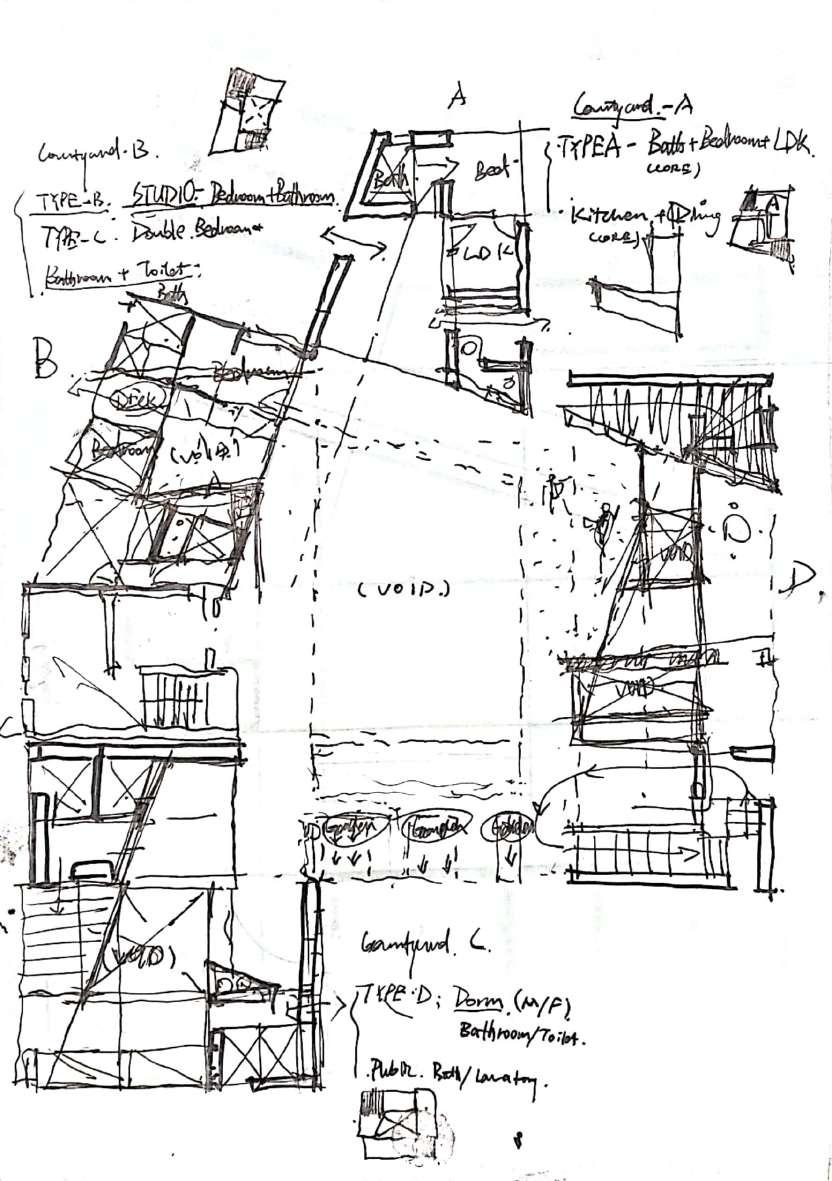 A
Courtyard.-A
TYPE A - Bath + Bedroom + LDK.
(CORE)
Kitchen + Ding
(CORE)
A
Courtyard-B.
TYPE-B. STUDIO- Bedroom + Bathroom.
TYPE-C. Double Bedroom+
Bathroom + Toilet:
Bath
Bed
LDK
Bath
B
Bedroom
Deck
Bedroom
(VOID)
(VOID.)
VOID
D
D.
VOID
Garden
Garden
Garden
(VOID)
Courtyard. C.
TYPE-D; Dorm. (M/F)
Bathroom/Toilet.
Public. Bath/Lavatory.